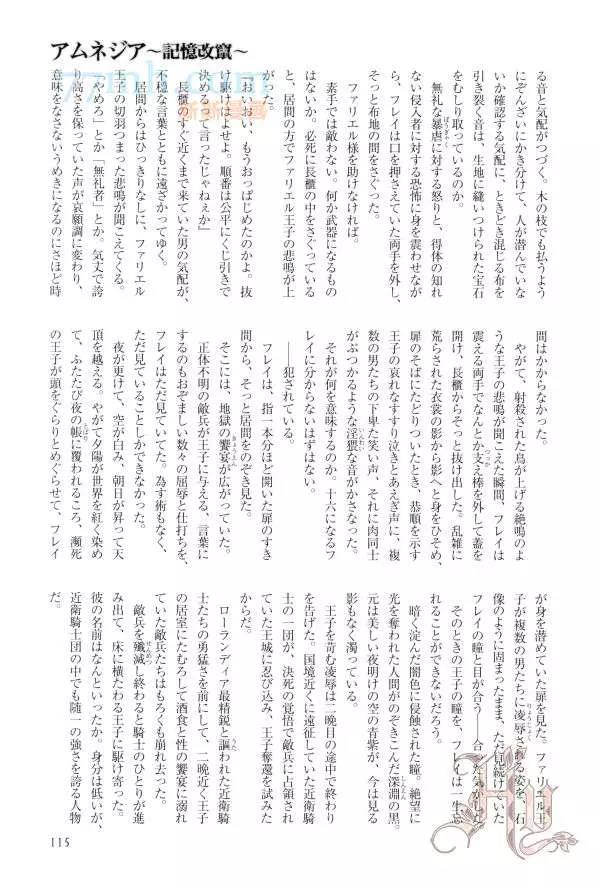 アムネジア～記憶改竄～
る音と気配がつづく。木の枝でも払うよう
にぞんざいにかき分けて、人が潜んでいな
いか確認する気配に、ときどき混じる布を
引き裂く音は、生地に縫いつけられた宝石
をむしり取っているのか。
無礼な暴虐に対する怒りと、得体の知れ
ない侵入者に対する恐怖に身を震わせなが
ら、フレイは口を押さえていた両手を外し、
そっと布地の間をさぐった。
ファリエル様を助けなければ。
素手では敵わない。何か武器になるもの
はないか。必死に長櫃の中をさぐっている
と、居間の方でファリエル王子の悲鳴が上
がった。
「おいおい、もうおっぱじめたのかよ。抜
け駆けはよせよ。順番は公平にくじ引きで
決めるって言ったじゃねぇか」
長櫃のすぐ近くまで来ていた男の気配が、
不穏な言葉とともに遠ざかってゆく。
居間からはひっきりなしに、ファリエル
王子の切羽つまった悲鳴が聞こえてくる。
「やめろ」とか「無礼者」とか。気丈で誇
り高さを保っていた声が哀願調に変わり、
意味をなさないうめきになるのにさほど時
間はかからなかった。
やがて、射殺された鳥が上げる絶鳴のよ
うな王子の悲鳴が聞こえた瞬間、フレイは
震える両手でなんとか支え棒を外して蓋を
開け、長櫃からそっと抜け出した。乱雑に
荒らされた衣裳の影から影へと身をひそめ、
扉のそばにたどりついたとき、恭順を示す
王子の哀れなすすり泣きとあえぎ声に、複
数の男たちの下卑た笑い声、それに肉同士
がぶつかるような淫猥な音がかさなった。
それが何を意味するのか。十六になるフ
レイに分からないはずはない。
――犯されている。
フレイは、指一本分ほど開いた扉のすき
間から、そっと居間をのぞき見た。
そこには、地獄の饗宴が広がっていた。
正体不明の敵兵が王子に与える、言葉に
するのもおぞましい数々の屈辱と仕打ちを、
フレイはただ見ていた。為す術もなく、
ただ見ていることしかできなかった。
夜が更けて、空が白み、朝日が昇って天
頂を越える。やがて夕陽が世界を紅く染め
て、ふたたび夜の帳に覆われるころ、瀕死
の王子が頭をぐらりとめぐらせて、フレイ
が身を潜めていた扉を見た。ファリエル王
子が複数の男たちに凌辱される姿を、石
像のように固まったまま、ただ見続けていた
フレイの瞳と目が合う――合った気がした。
そのときの王子の瞳を、フレイは一生忘
れることができないだろう。
暗く淀んだ闇色に侵蝕された瞳。絶望に
光を奪われた人間がのぞきこんだ深淵の黒。
元は美しい夜明けの空の青紫が、今は見る
影もなく濁っている。
王子を苛む凌辱は二晩目の途中で終わり
を告げた。国境近くに遠征していた近衛騎
士の一団が、決死の覚悟で敵兵に占領され
ていた王城に忍び込み、王子奪還を試みた
からだ。
ローランディア最精鋭と謳われた近衛騎
士たちの勇猛さを前にして、二晩近く王子
の居室にたむろして酒食と性の饗宴に溺れ
ていた敵兵たちはもろくも崩れ去った。
敵兵を殲滅し終わると騎士のひとりが進
み出て、床に横たわる王子に駆け寄った。
彼の名前はなんといったか。身分は低いが、
近衛騎士団の中でも随一の強さを誇る人物
だ。
115